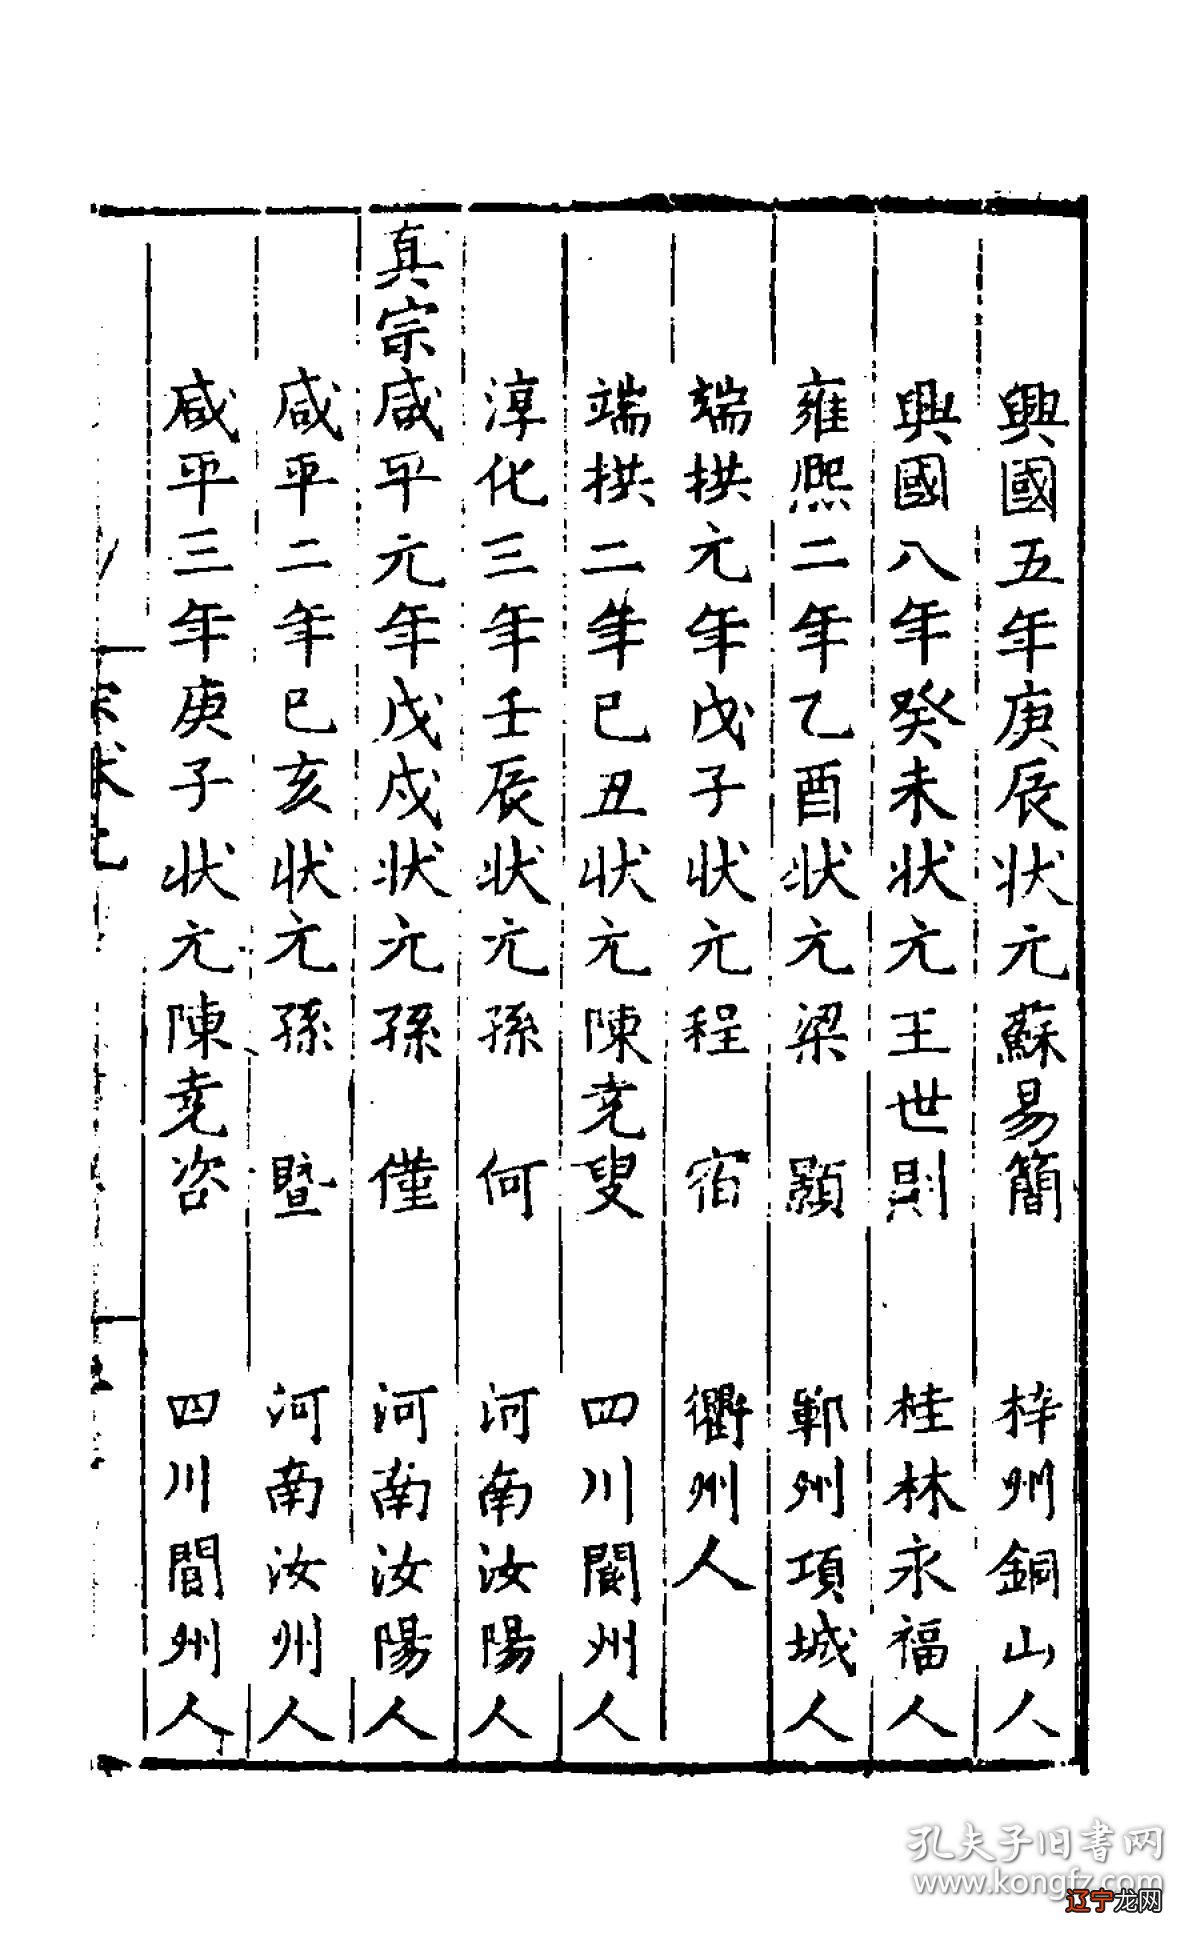 興國五年庚辰状元蘇易簡 梓州銅山人
興國八年癸未状元王世則 桂林永福人
雍熙二年乙酉状元梁顥 鄆州項城人
端拱元年戊子状元程宿 衢州人
端拱二年己丑状元陳尭叟 四川閬州人
淳化三年壬辰状元孫何 河南汝陽人
真宗咸平元年戊戌状元孫僅 河南汝陽人
咸平二年己亥状元孫暨 河南汝州人
咸平三年庚子状元陳尭咨 四川間州人
孔夫子旧書网
www.kongfz.com
辽宁龙网